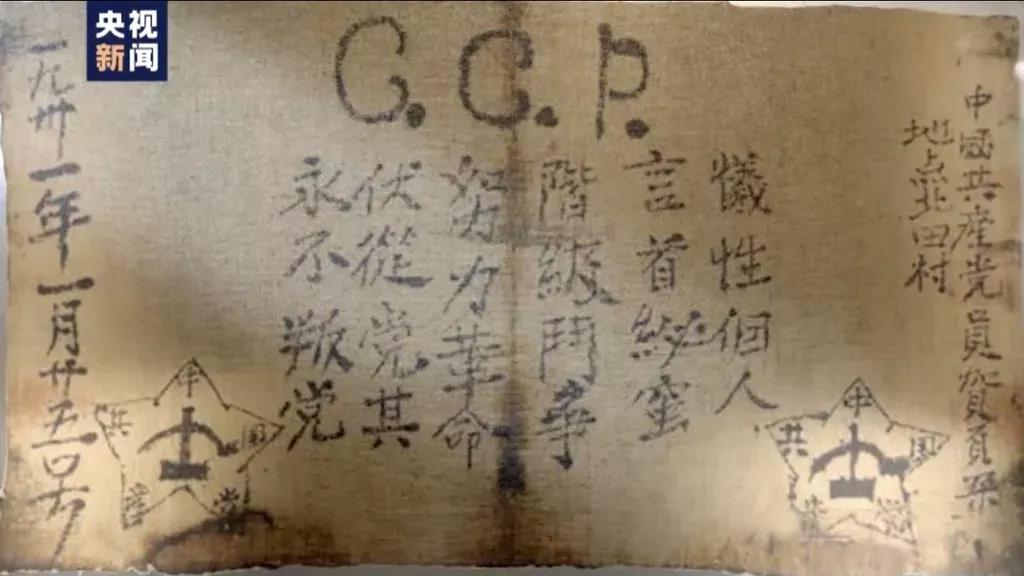 央视
新闻
C.C.P.
中國共産党員贺頁朵
地点北田村
犠性個人
言首秘蜜
階級鬥争
努力革命
伏從党其
永不叛党
一九卅一年一月廿五
中
共
国
産
党
中
共
国
産
党